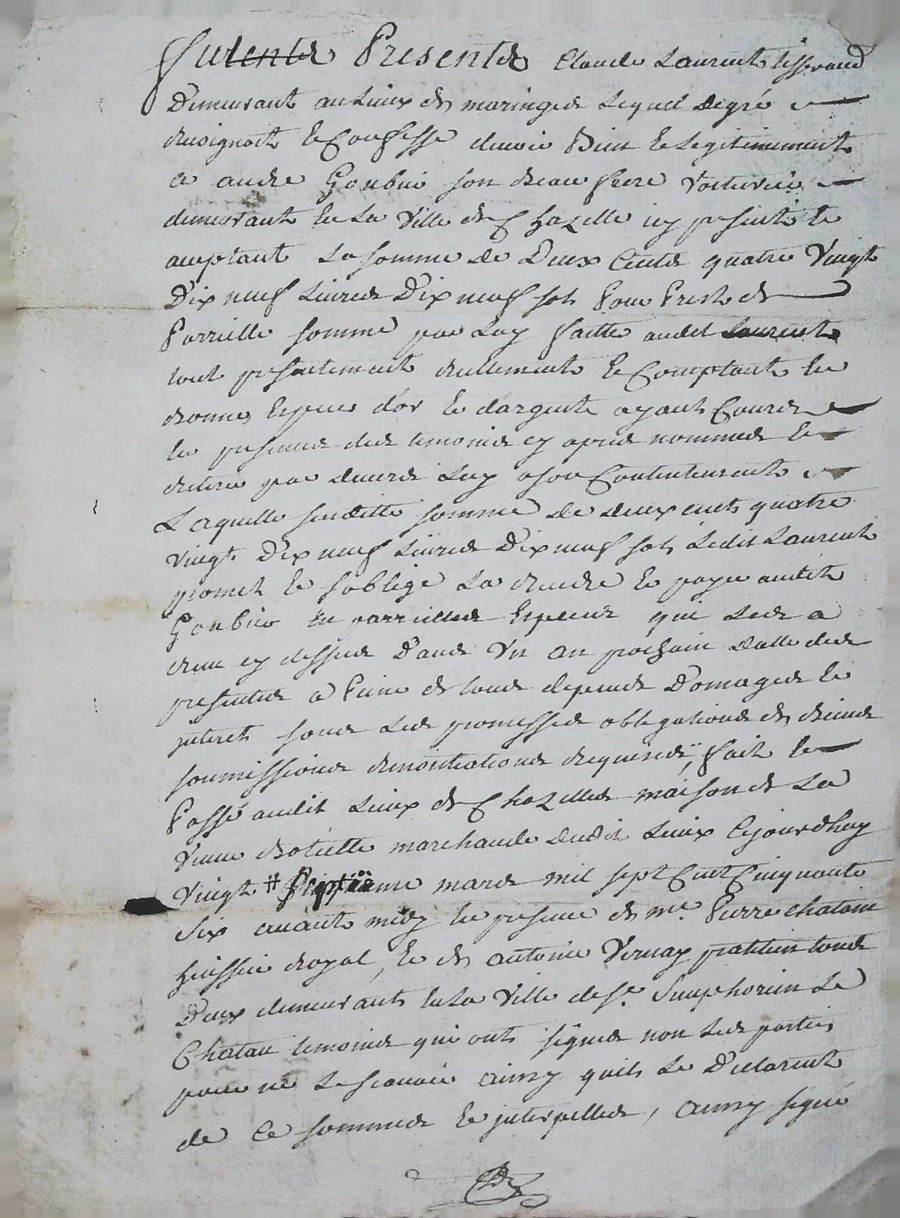 furente Presente Claude Laurent tisserand
Demeurant au Lieux de maringes Lequel degré
reconoit & Confesse devoir Bien & Legitimement
a andre Goubier son Beau frere voiturier
demeurant en La ville de ChaZelle icy present &
aceptant La somme de Deux Cents quatre Vingt
Dix neuf Livres Dix neuf sols Pour Prest de
Parreille somme par Luy faitte audit Laurent
tout presentement reellement & Comptant en
bonnes Especes d'or & d'argent ayant Cours
en presence des temoins cy apres nommes &
retirée par devers Luy a son Contentement
Laquelle susditte somme de deux cents quatre
vingt Dix neuf Livres Dix neuf sols Ledit Laurent
promet & soblige La rendre & payer audit
Goubier en parreilles Especes que Les a
reçu cy dessus D'ans Un an prochain datte des
presentes a Peine de tous depens Domages &
interets sous Les promesses obligations de Biens
soumissions renontiations requises, fait &
Passé audit Lieux de ChaZelles maison de La
Veuve marchande dudit Lieux Cejourdhuy
Vingt # septieme mars mil sept Cent Cinquante
Six avant midy en presence de me. Pierre chatain
huissier Royal, & de antoine Vernay pratitien tous
Deux demeurants en La Ville de St. Simphorien Le
Chatau temoins qui ont signes non Les parties
pour ne Le scavoir ainsy quils Le Declarent
de Ce sommes & interpelles, ainsy signé